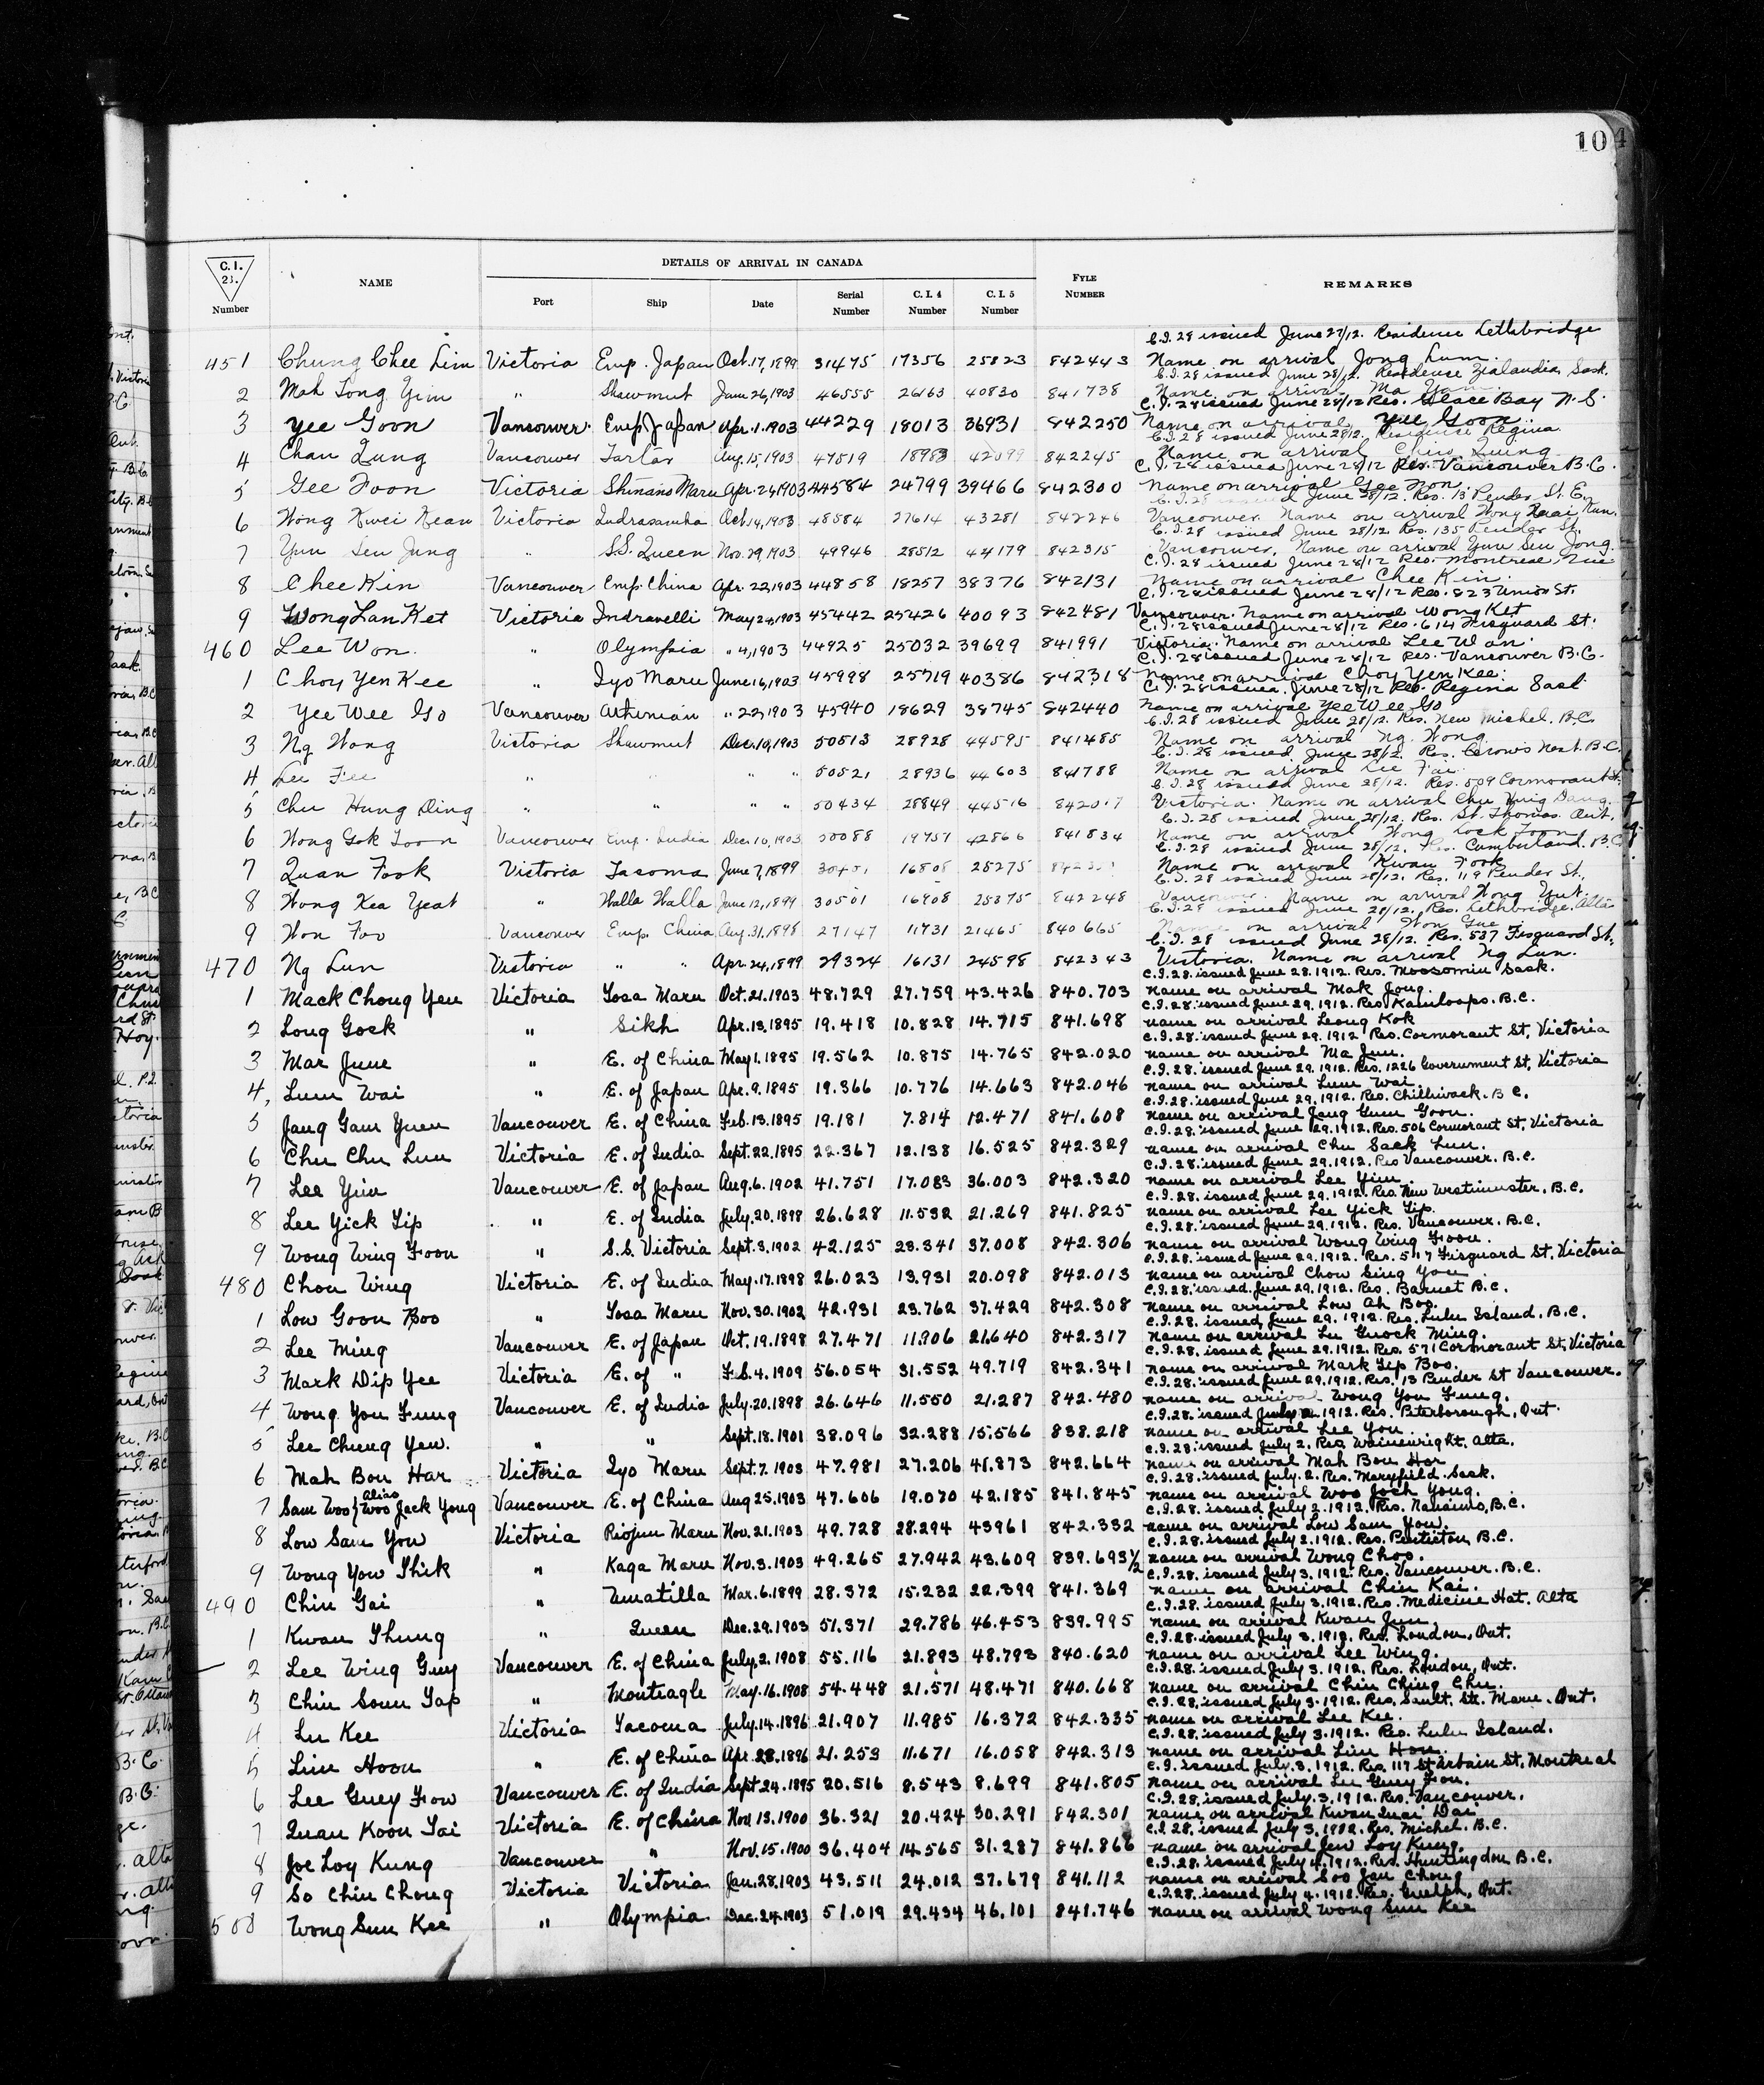 104
C. I. 28. Number
NAME
DETAILS OF ARRIVAL IN CANADA
Port Ship Date Serial Number C. I. 4 Number C. I. 5 Number
FYLE NUMBER
REMARKS
C.I. 28 issued June 27/12. Residence Lethbridge
451 Chung Chee Lim Victoria Emp. Japan Oct. 17, 1899 31475 17356 25823 842443 Name on arrival Jong Lum.
C.I. 28 issued June 28/12. Residence Zealandia Sask.
2 Mah Long Yim " Shawmut June 26, 1903 46555 26163 40830 841738 Name on arrival Ma Yam.
C.I. 28 issued June 28/12 Res. Glace Bay N.S.
3 Yee Goon Vancouver Emp. Japan Apr. 1. 1903 44229 18013 36931 842250 Name on arrival Yee Goon
C.I. 28 issued June 28/12. Residence Regina
4 Chan Qung Vancouver Tartar Aug. 15, 1903 47519 18983 42099 842245 Name on arrival
C.I. 28 issued June 28/12 Res. Vancouver B.C.
5 Gee Foon Victoria Shinano Maru Apr. 24, 1903 44584 24799 39466 842300 Name on arrival Gee Hon.
C.I. 28 issued June 28/12. Res. 13 Pender St. E.
6 Wong Kwei Kean Victoria Indrasamha Oct. 14, 1903 48584 27614 43281 842246 Vancouver. Name on arrival Wong Kuai Kun.
C.I. 28 issued June 28/12. Res. 135 Pender St.
7 Yun Seu Jung " S.S. Queen Nov. 29, 1903 49946 28512 44179 842315 Vancouver. Name on arrival Yun Seu Jong.
C.I. 28 issued June 28/12 Res. Montreal, Que
8 Chee Kin Vancouver Emp. China Apr. 22, 1903 44858 18257 38376 842131 Name on arrival Chee Kin.
C.I. 28 issued June 28/12 Res. 823 Union St.
9 Wong Lan Ket Victoria Indravelli May 24, 1903 45442 25426 40093 842481 Vancouver. Name on arrival Wong Ket
C.I. 28 issued June 28/12 Res. 614 Fisguard St.
460 Lee Won. " Olympia " 4, 1903 44925 25032 39699 841991 Victoria. Name on arrival Lee Won.
C.I. 28 issued June 28/12 Res. Vancouver B.C.
1 Choy Yen Kee " Iyo Maru June 16, 1903 45998 25719 40386 842318 Name on arrival Choy Yen Kee.
C.I. 28 issued June 28/12 Res. Regina Sask
2 Yee Wee Go Vancouver Athenian " 22, 1903 45940 18629 38745 842440 Name on arrival Yee Wee Go
C.I. 28 issued June 28/12. Res. New Michel, B.C.
3 Ng Wong Victoria Shawmut Dec. 10, 1903 50513 28928 44595 841485 Name on arrival Ng Wong.
C.I. 28 issued June 28/12. Res. Crow's Nest. B.C.
4 Lee Fee " " " 50521 28936 44603 841788 Name on arrival Lee Fai
C.I. 28 issued June 28/12. Res. 509 Cormorant St.
5 Chu Hung Ding " " " " 50434 28849 44516 842017 Victoria. Name on arrival Chu Yung Dang.
C.I. 28 issued June 28/12. Res. St. Thomas. Ont.
6 Wong Gok Toon Vancouver Emp. India Dec. 10, 1903 50088 19757 42866 841834 Name on arrival Wong Cock Toon
C.I. 28 issued June 28/12. Res. Cumberland, B.C.
7 Quan Fook Victoria Tacoma June 7, 1899 16808 25275 Name on arrival Kwan Fook
C.I. 28 issued June 28/12. Res. 119 Pender St.,
8 Wong Kea Yeat " Walla Walla June 12, 1899 30501 16908 25375 842248 Vancouver. Name on arrival Wong Yut.
C.I. 28 issued June 28/12. Res. Lethbridge. Alta
9 Won Foo Vancouver Emp. China Aug. 31, 1898 27147 11731 21465 840665 Name on arrival Won Gue
C.I. 28 issued June 28/12. Res. 537 Fisguard St.,
470 Ng Lun Victoria " " Apr. 24, 1899 29324 16131 24598 842343 Victoria. Name on arrival Ng Lun.
C.I. 28. issued June 28. 1912. Res. Moosomin Sask.
1 Mack Chong Yen Victoria Tosa Maru Oct. 21. 1903 48.729 27.759 43.426 840.703 Name on arrival Mak Jong.
C.I. 28. issued June 29. 1912. Res. Kamloops. B.C.
2 Long Gock " Sikh Apr. 13. 1895 19.418 10.828 14.715 841.698 Name on arrival Leong Kok
C.I. 28. issued June 29. 1912 Res. Cormorant St, Victoria
3 Mar June " E. of China May 1. 1895 19.562 10.875 14.765 842.020 Name on arrival Ma Jun.
C.I. 28. issued June 29. 1912. Res. 1226 Government St, Victoria
4, Lum Wai " E. of Japan Apr. 9. 1895 19.366 10.776 14.663 842.046 Name on arrival Lum Wai.
C.I. 28. issued June 29, 1912. Res. Chilliwack. B C.
5 Jang Gam Yuen Vancouver E. of China Feb. 13. 1895 19.181 7.814 12.471 841.608 Name on arrival Jang Gum Goon.
C.I. 28. issued June 29. 1912. Res. 506 Cormorant St, Victoria
6 Chu Chu Lun Victoria E. of India Sept. 22. 1895 22.367 12.138 16.525 842.329 Name on arrival Chu Sack Lun.
C.I. 28. issued June 29. 1912. Res Vancouver. B.C.
7 Lee Yim Vancouver E. of Japan Aug. 6. 1902 41.751 17.083 36.003 842.320 Name on arrival Lee Yim
C.I. 28. issued June 29. 1912. Res. New Westminster, B.C.
8 Lee Yick Yip " E. of India July. 20. 1898 26.628 11.532 21.269 841.825 Name on arrival Lee Yick Yip.
C.I. 28. issued June 29, 1912. Res. Vancouver. B.C.
9 Wong Wing Foon " S.S. Victoria Sept. 3. 1902 42.125 23.341 37.008 842.306 Name on arrival Wong Wing Foon.
C.I. 28. issued June 29. 1912. Res. 517 Fisguard St, Victoria
480 Chou Wing Victoria E. of India May. 17. 1898 26.023 13.931 20.098 842.013 Name on arrival Chow Sing You
C.I. 28. issued June 29. 1912. Res. Barnet B.C.
1 Low Goon Boo " Tosa Maru Nov. 30. 1902 42.931 23.762 37.429 842.308 Name on arrival Low Ah Boo.
C.I. 28. issued June 29. 1912. Res. Lulu Island. B.C.
2 Lee Ming Vancouver E. of Japan Oct. 19. 1898 27.471 11.906 21.640 842.317 Name on arrival Lu Guock Ming.
C.I. 28. issued June 29. 1912. Res. 571 Cormorant St, Victoria
3 Mark Dip Yee Victoria E. of " Feb. 4. 1909 56.054 31.552 49.719 842.341 Name on arrival Mark Yip Boo.
C.I. 28. issued June 29, 1912. Res. 13 Pender St Vancouver.
4 Wong You Fung Vancouver E. of India July. 20. 1898 26.646 11.550 21.287 842.480 Name on arrival Wong You Fung.
C.I. 28. issued July 2 1912. Res. Peterborough, Ont.
5 Lee Chung Yew. " " Sept. 18. 1901 38.096 32.288 15.566 838.218 Name on arrival Lee You
C.I. 28 issued July 2. Res Wainwright, Alta.
6 Mah Bon Har Victoria Iyo Maru Sept. 7. 1903 47.981 27.206 41.873 842.664 Name on arrival Mah Bon Hor
C.I. 28. issued July. 2. Res. Maryfield. Sask.
7 Sam Woo} Alias Woo Jack Yong Vancouver E. of China Aug 25. 1903 47.606 19.070 42.185 841.845 Name on arrival Woo Joch Yong.
C.I. 28. issued July 2. 1912. Res. Nanaimo, B.C.
8 Low Sam You Victoria Riojun Maru Nov. 21. 1903 49.728 28.294 43961 842.332 Name on arrival Low Sam You.
C.I. 28. issued July 2. 1912. Res. Penticton, B.C.
9 Wong Yow Shik " Kaga Maru Nov. 3. 1903 49.265 27.942 43.609 839.693½ Name on arrival Wong Choo.
C.I. 28. issued July 3, 1912. Res. Vancouver. B.C.
490 Chin Gai " Umatilla Mar. 6. 1899 28.372 15.232 22.399 841.369 Name on arrival Chin Kai.
C.I. 28. issued July 3, 1912. Res. Medicine Hat. Alta
1 Kwan Shung " Queen Dec. 29. 1903 51.371 29.786 46.453 839.995 Name on arrival Kwan Jun
C.I. 28. issued July 3. 1912. Res. London, Ont.
2 Lee Wing Guy Vancouver E. of China July. 2. 1908 55.116 21.893 48.793 840.620 Name on arrival Lee Wing.
C.I. 28. issued July 3. 1912. Res. London, Ont.
3 Chin Soun Yap " Monteagle May. 16. 1908 54.448 21.571 48.471 840.668 Name on arrival Chin Ching Chu.
C.I. 28. issued July 3. 1912. Res. Sault. Ste. Marie. Ont.
4 Lu Kee Victoria Tacoma July. 14. 1896 21.907 11.985 16.372 842.335 Name on arrival Lee Kee.
C.I. 28. issued July 3. 1912. Res. Lulu Island.
5 Lim Hoon " E. of China Apr. 28. 1896 21.253 11.671 16.058 842.313 Name on arrival Lim Hon.
C.I. issued July. 3. 1912. Res. 117 St Urbain St, Montreal
6 Lee Guey Fow Vancouver E. of India Sept 24. 1895 20.516 8.543 8.699 841.805 Name on arrival Lu Guey Fon.
C.I. 28. issued July. 3. 1912. Res. Vancouver.
7 Quan Koon Tai Victoria E. of China Nov. 13. 1900 36.321 20.424 30.291 842.301 Name on arrival Kwan Quai Dai
C.I. 28. issued July 3, 1912. Res. Michel. B.C.
8 Joe Loy Kung Vancouver " Nov. 15. 1900 36.404 14.565 31.287 841.866 Name on arrival Jew Loy Kung.
C.I. 28. issued July 4. 1912. Res. Huntingdon B.C.
9 So Chin Chong Victoria Victoria Jan. 28. 1903 43.511 24.012 37.679 841.112 Name on arrival Soo Jan Chong
C.I. 28. issued July 4. 1912. Res. Guelph, Ont.
500 Wong Sun Kee " Olympia Dec. 24. 1903 51.019 29.434 46.101 841.746 Name on arrival Wong Sun Kee